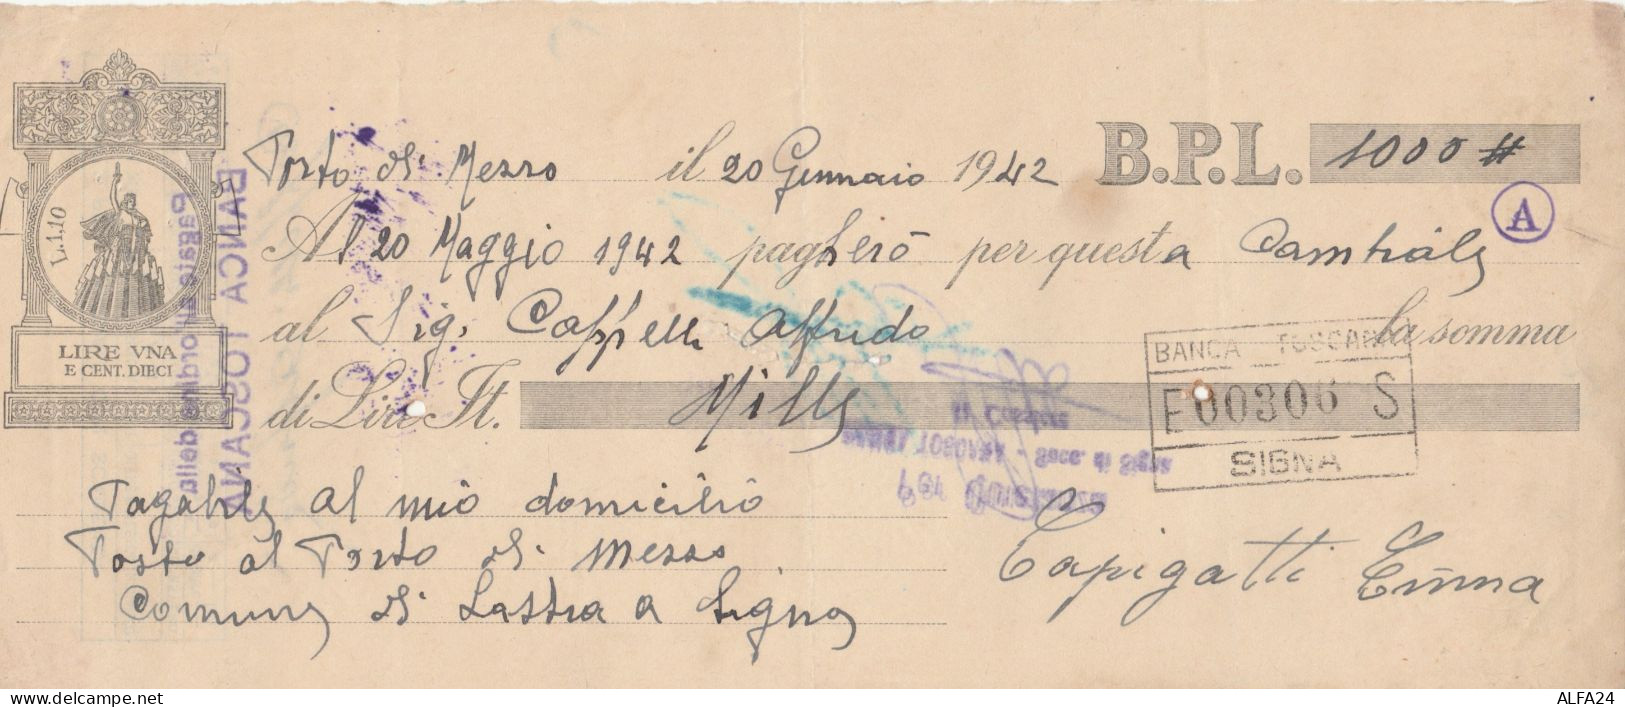 Porto di Mezzo il 20 Gennaio 1942 B.P.L. 1000 #
A
Al 20 Maggio 1942 pagherò per questa Cambiale
al Sig. Cappelli Alfredo la somma
di Lire It. Mille
L.1,10
LIRE VNA
E CENT. DIECI
BANCA TOSCANA
Pagate all'ordine della
BANCA TOSCANA
E 00306 S
SIGNA
Per Quietanza
BANCA TOSCANA - Succ. di Signa
Il Cassiere
Pagabile al mio domicilio
Posto al Porto di Mezzo
Comune di Lastra a Signa
Capigatti Emma
www.delcampe.net
ALFA24